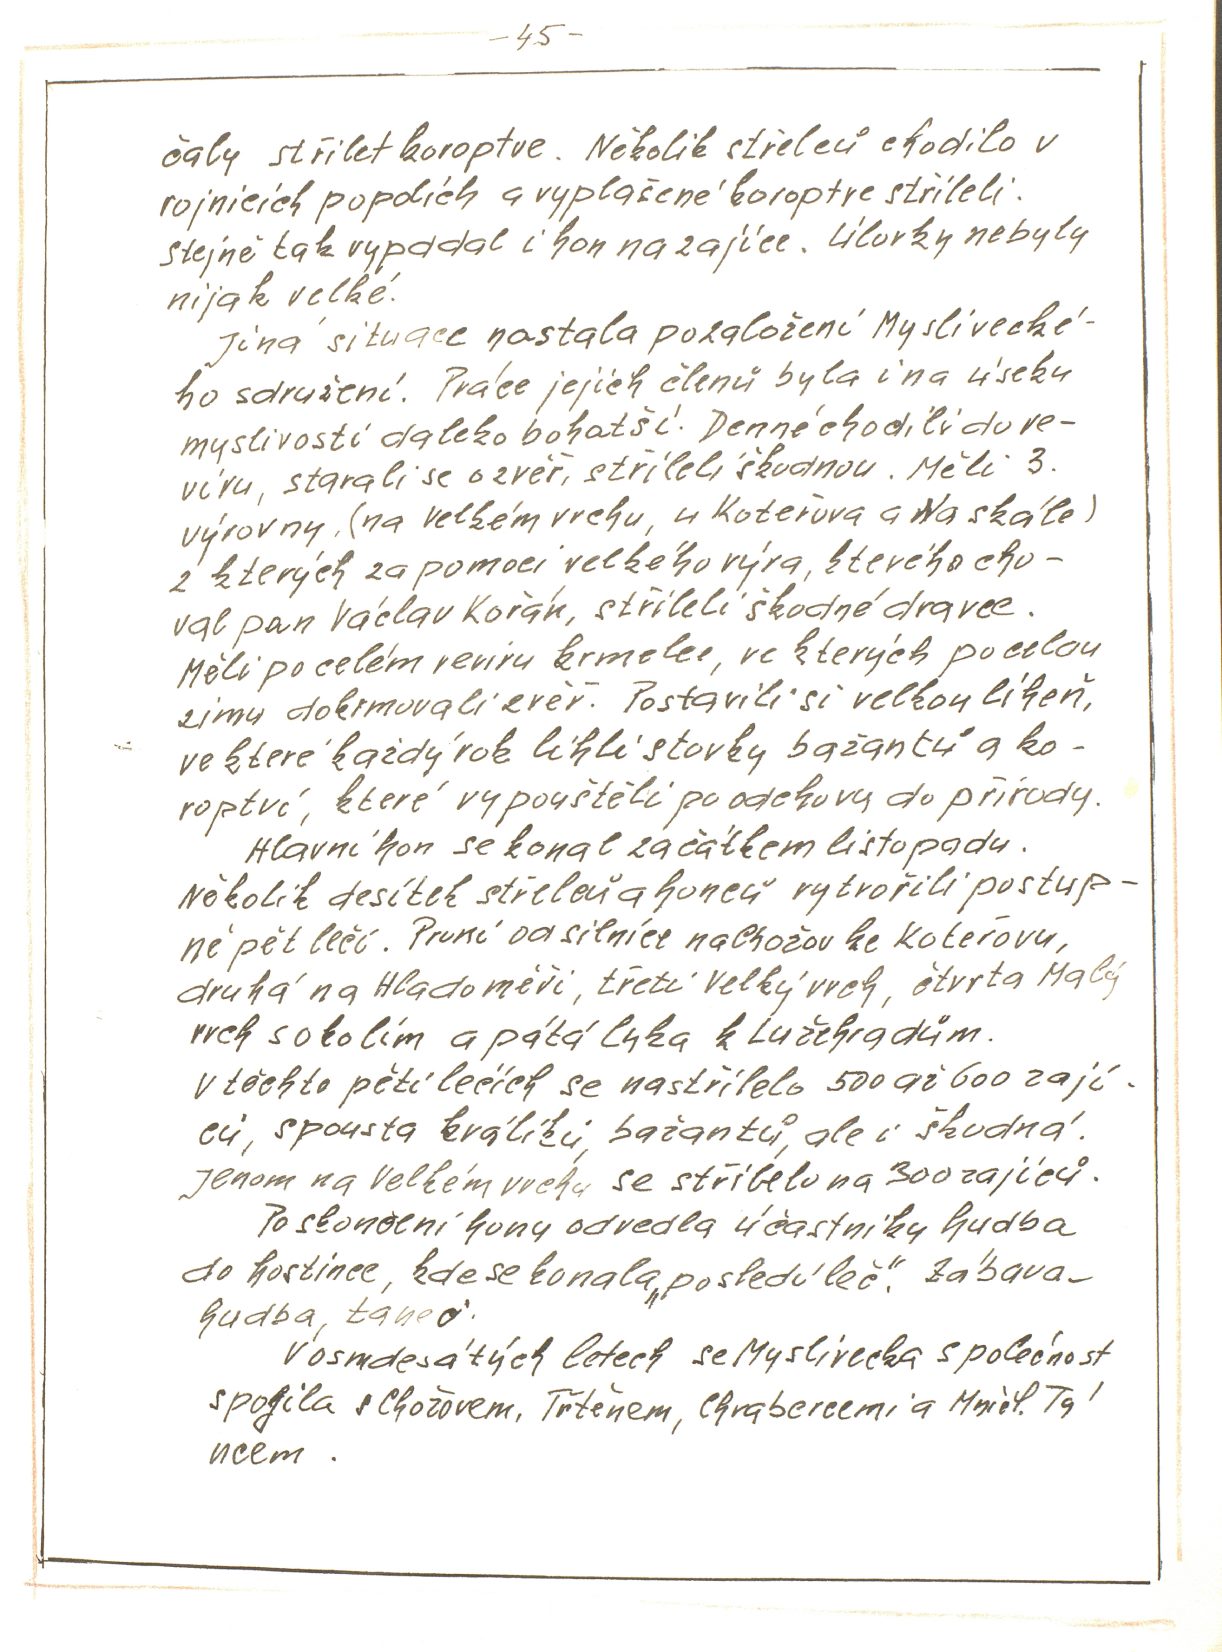 -45-
čaly střílet koroptve. Několik střelců chodilo v
rojnicích popolích a vyplašené koroptve stříleli.
Stejně tak vypadal i hon na zajíce. Úlovky nebyly
nijak velké.
Jiná situace nastala pozaložení Myslivecké-
ho sdružení. Práce jejich členů byla i na úseku
myslivosti daleko bohatší. Denně chodili do re-
víru, starali se o zvěř, stříleli škodnou. Měli 3.
výrovny, (na Velkém vrchu, u Koteřova a Na skále)
z kterých za pomoci velkého výra, kterého cho-
val pan Václav Kořán, stříleli škodné dravce.
Měli po celém revíru krmelce, ve kterých po celou
zimu dokrmovali zvěř. Postavili si velkou líheň,
ve které každý rok líhli stovky bažantů a ko-
roptví, které vypouštěli po odchovu do přírody.
Hlavní hon se konal začátkem listopadu.
Několik desítek střelců a honců vytvořili postup-
ně pět lečí. První od silnice na Chožov ke Koteřovu,
druhá na Hladoměři, třetí Velký vrch, čtvrta Malý
vrch s okolím a pátá luka k Lužehradům.
V těchto pěti lečích se nastřílelo 500 až 600 zají-
ců, spousta králíků, bažantů, ale i škodná.
Jenom na Velkém vrchu se střílelo na 300 zajíců.
Po skončení honu odvedla účastníky hudba
do hostince, kde se konala „posledí leč". Zábava-
hudba, tanec.
V osmdesátých letech se Myslivecká společnost
spojila s Chožovem, Třtěnem, Chrabercemi a Mnich. Tý
ncem.